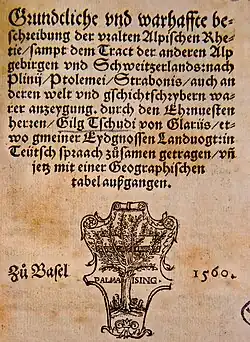 Grundtliche vnd warhaffte be-
schreibung der vralten Alpischen Rhe-
tie/sampt dem Tract der anderen Alp
gebirgen vnd Schweitzerlands: nach
Plinij/Ptolemei/Strabonis/auch an
deren welt vnd gschichtschrybern wa-
rer anzeygung. durch den Ehrnuesten
herren/Gilg Tschudi von Glarüs/et-
wo gmeiner Eydgnossen Landuogt: in
Teütsch spraach zůsamen getragen/vñ
jetz mit einer Geographischen
tabel außgangen.
PALMA ISING
Zů Basel 1560.